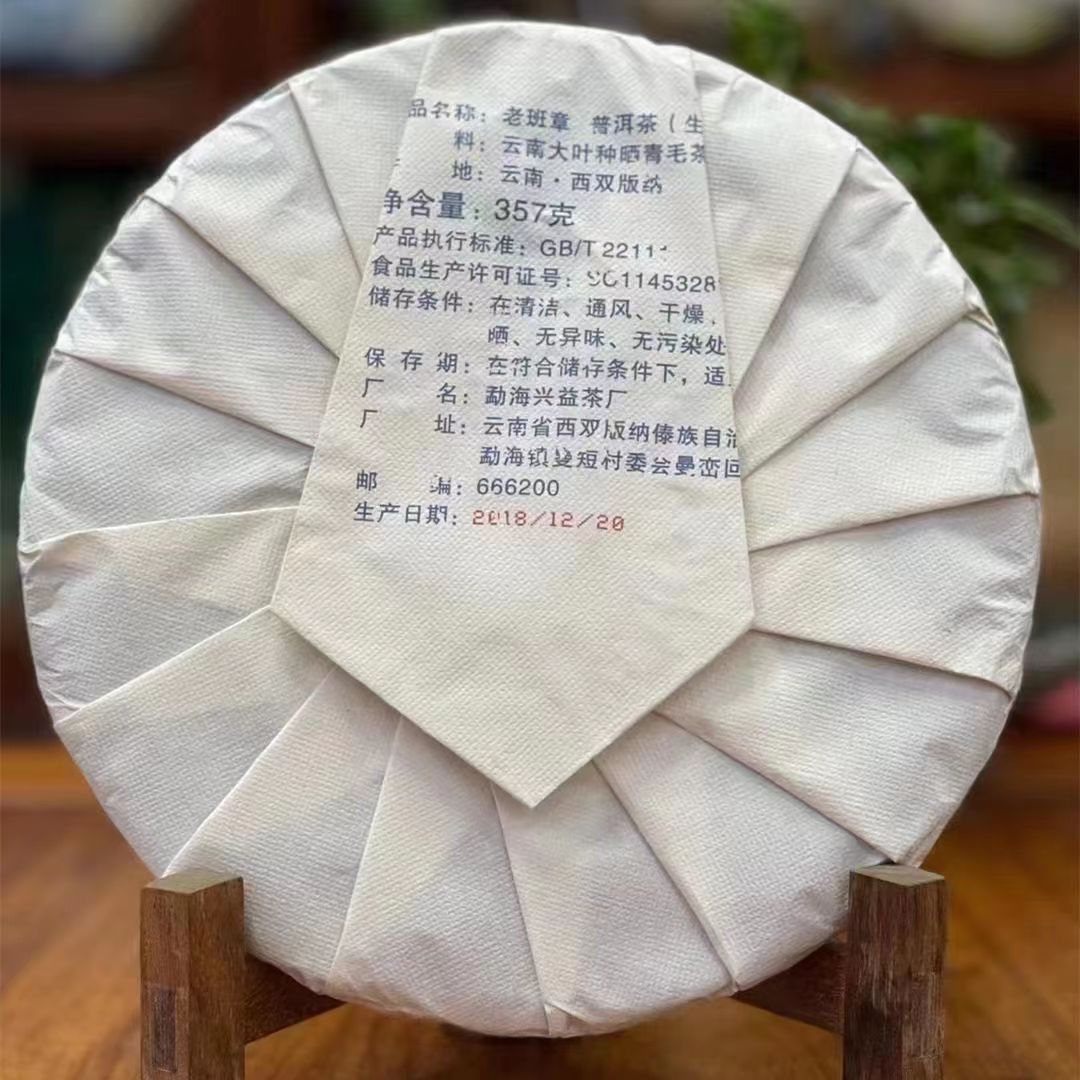 品名称：老班章 普洱茶（生
料：云南大叶种晒青毛茶
地：云南·西双版纳
净含量：357克
产品执行标准：GB/T 22111
食品生产许可证号：SC1145328
储存条件：在清洁、通风、干燥、
晒、无异味、无污染处
保存期：在符合储存条件下，适
厂名：勐海兴益茶厂
厂址：云南省西双版纳傣族自治
勐海镇曼短村委会曼峦回
邮编：666200
生产日期：2018/12/20